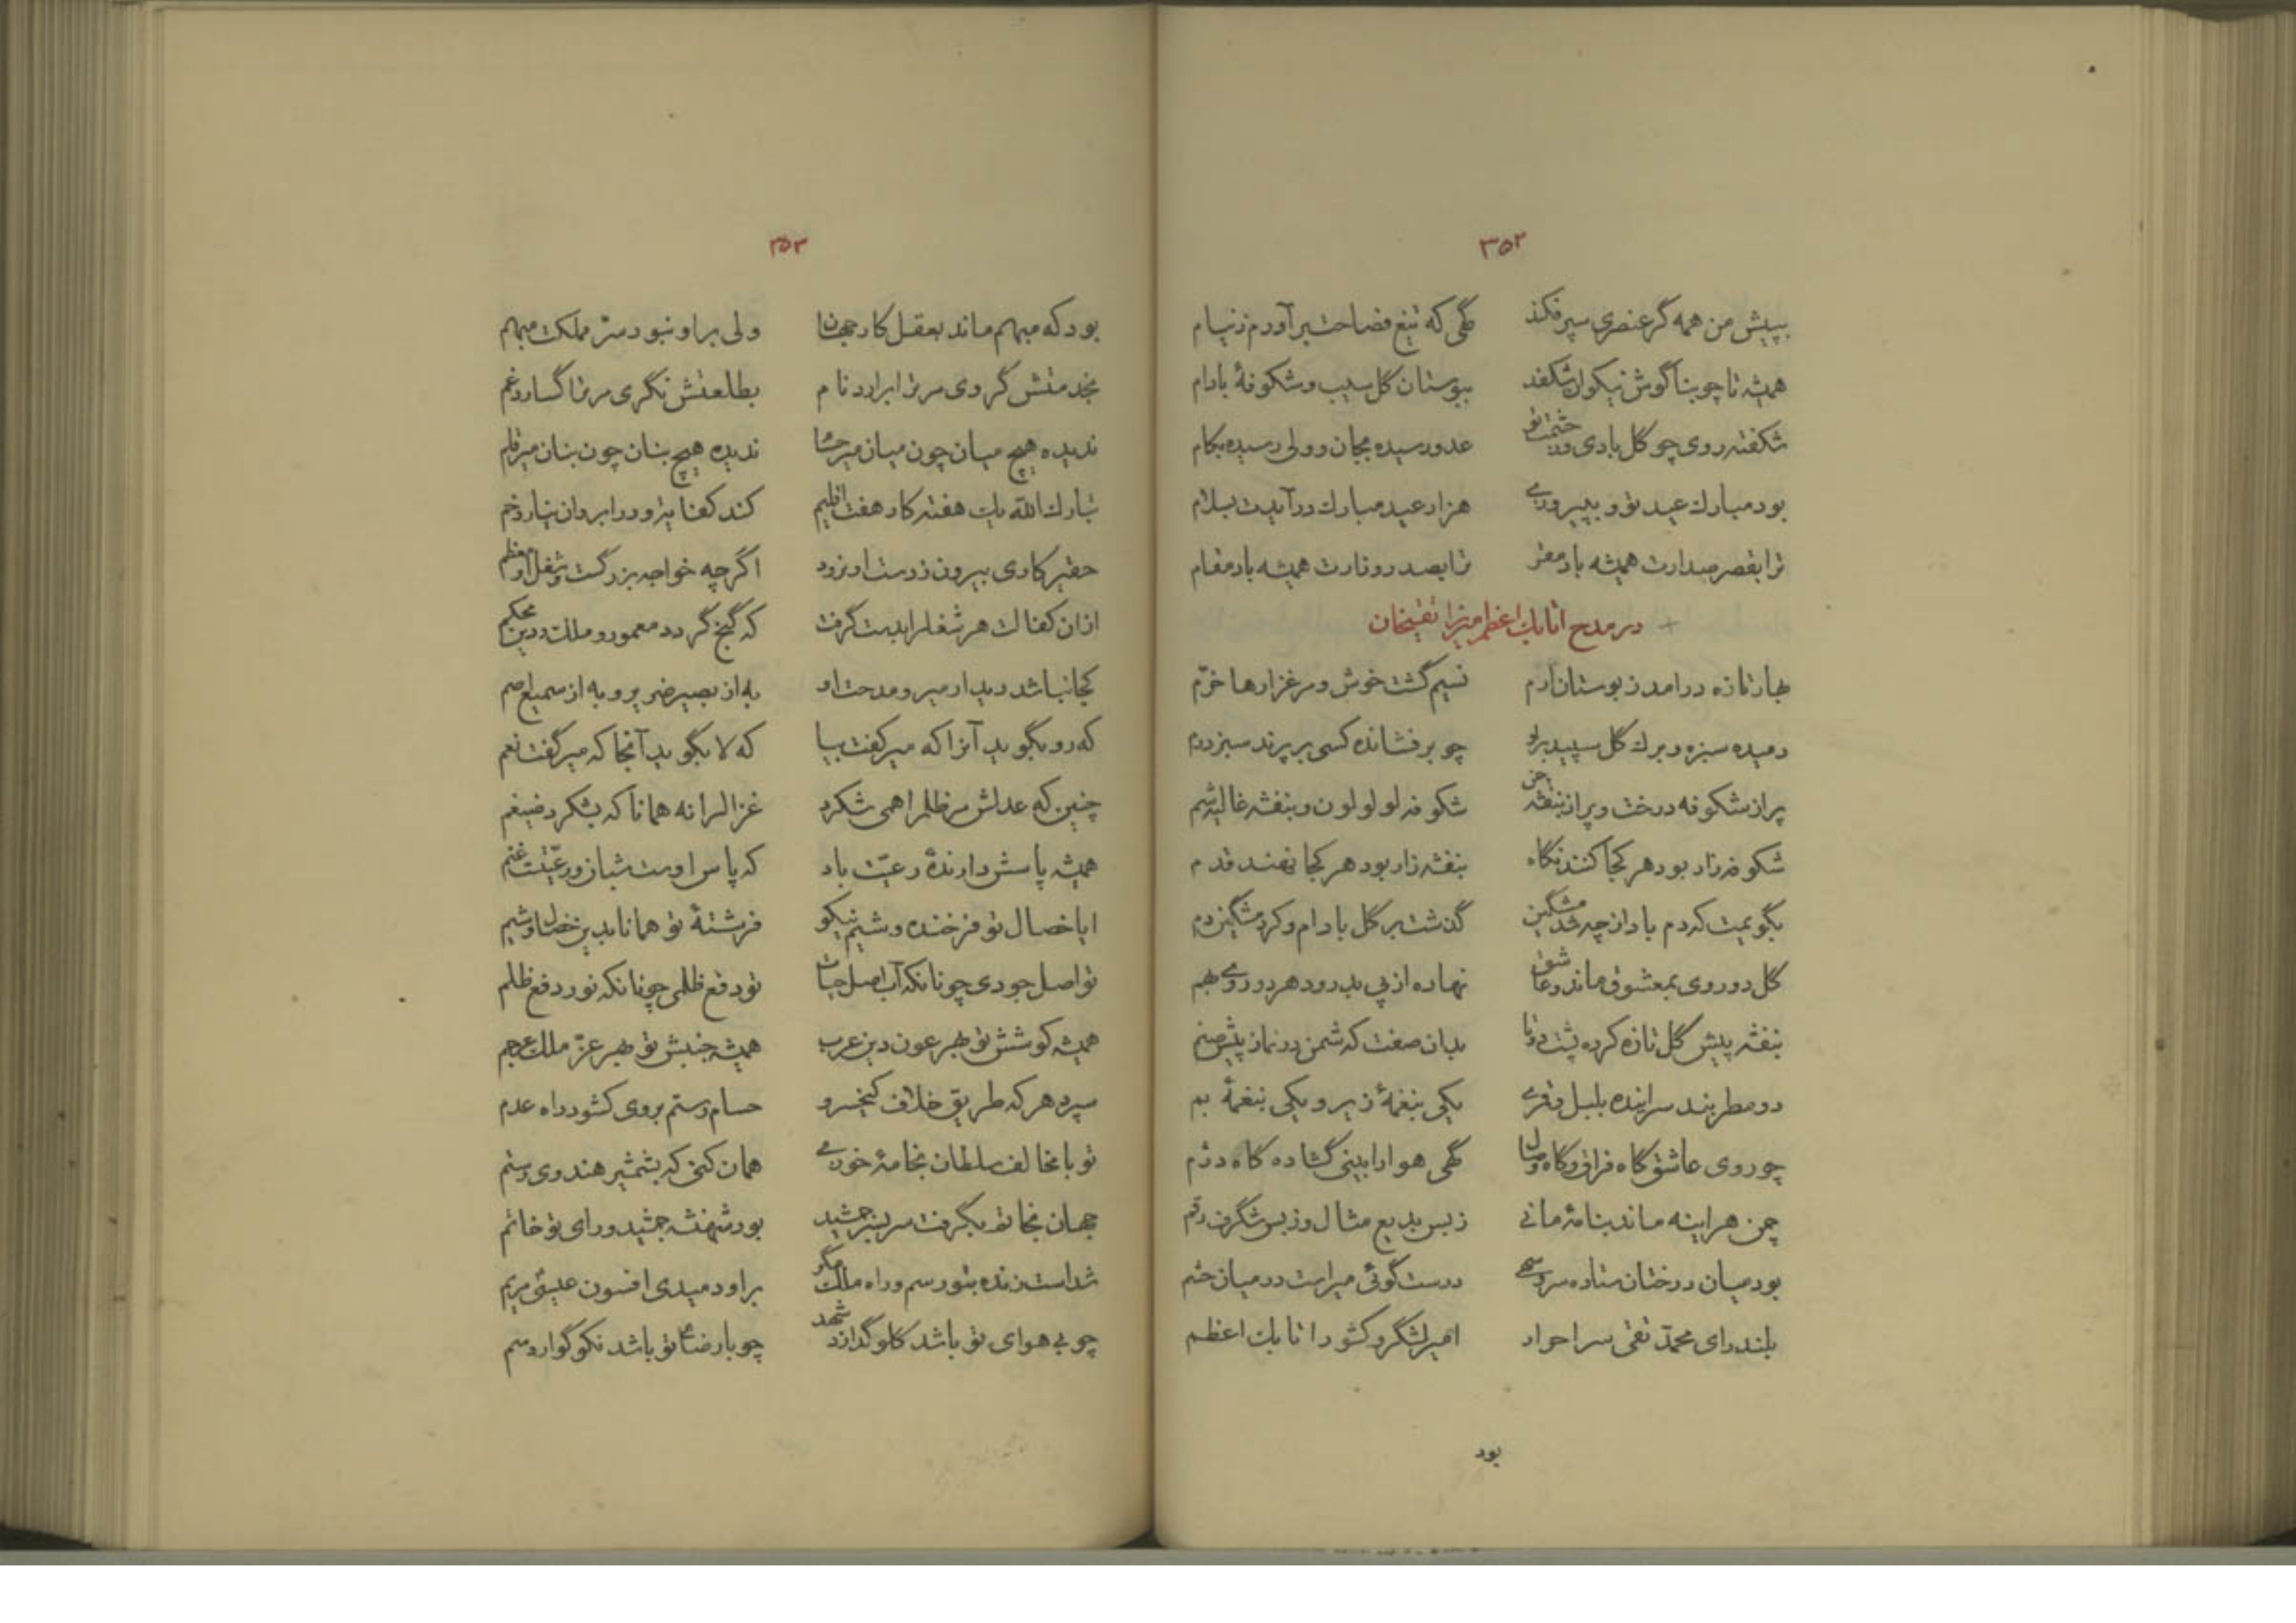 ۳۵۲
بپیش من همه گر عنصری سپر فکند گهی که تیغ فصاحت برآورم ز نیام
همیشه تا چو بناگوش نیکوان شکفد ببوستان گل سیب و شکوفهٔ بادام
شکفته روی چو گل بادی و ز حشمت تو عدو رسیده بجان و ولی رسیده بکام
بود مبارک عید تو و بپیروزی هزار عید مبارک درآیدت بسلام
ترا بقصر صدارت همیشه باد مقر ترا بصدر وزارت همیشه باد مقام
در مدح اتابک اعظم میرزا تقیخان
بهار تازه درامد ز بوستان ارم نسیم گشت خوش و مرغزارها خرّم
دمیده سبزه و برک گل سپید براو چو برفشانده کسی بر پرند سبز درم
پر از شکوفه درخت و پر از بنفشه چمن شکوفه لولو لون و بنفشه غالیه شم
شکوفه زار بود هر کجا کنند نگاه بنفشه زار بود هر کجا نهند قدم
بگویمت که دم باد از چه شد مشگین گذشت بر گل بادام و کرد مشگین دم
گل دوروی بمعشوق ماند و عاشق نهاده از پی بدرود هر دو روی بهم
بنفشه پیش گل تازه کرده پشت دوتا بدان صفت که شمن در نماز پیش صنم
دو مطربند سراینده بلبل و قمری یکی بنغمهٔ زیر و یکی بنغمهٔ بم
چو روی عاشق گاه فراق و گاه وصال گهی هوا را بینی گشاده گاه دژم
چمن هراینه ماند بنامهٔ مانی ز بس بدیع مثال و ز بس شگرف رقم
بود میان درختان ستاده سرو سهی درست گوئی میراست در میان حشم
بلند رای محمّد تقی سر احرار امیر لشگر و کشور اتابک اعظم
بود
۳۵۳
بود که مبهم ماند بعقل کار جهان ولی براو نبود سرّ مملکت مبهم
بخدمتش گروی مر ترا برارد نام بطلعتش نگری مر ترا گسارد غم
ندیده هیچ میان چون میان میر حسام ندیده هیچ بنان چون بنان میر قلم
تبارک الله یک هفته کار هفت اقلیم کند کفایت و در ابروان نیارد خم
حقیر کاری بیرون ز دست او نرود اگر چه خواجه بزرگست و شغل او معظم
ازان کفالت هر شغل را بدست گرفت که گنج گردد معمور و ملک و دین محکم
کجا نباشد دیدار میر و مدحت او به از بصیر ضریر و به از سمیع اصم
که رو بگوید آنرا که میر گفت بیا که لا بگوید آنجا که میر گفت نعم
چنین که عدلش مر ظلم را همی شکرد غزال را نه همانا که بشکرد ضیغم
همیشه پاسش دارندهٔ رعیّت باد که پاس اوست شبان و رعیّتست غنم
ایا خصال تو فرخنده و شیم نیکو فرشتهٔ تو همانا بدین خصال و شیم
تو اصل جودی چونانکه آب اصل حیات تو دفع ظلمی چونانکه نور دفع ظلم
همیشه کوشش تو بهر عون دین عرب همیشه جنبش تو بهر عزّ ملک عجم
سپرد هر که طریق خلاف کیخسرو حسام رستم بروی کشود راه عدم
تو با مخالف سلطان بخامهٔ خودی همان کنی که بشمشیر هندوی رستم
جهان بخاتم بگرفت سر بسر جمشید بود شهنشه جمشید و رای تو خاتم
شداست زنده بتو رسم و راه ملک مگر براو دمیدی افسون عیسی مریم
چو بی هوای تو باشد گلو گدازد شهد چو با رضای تو باشد نکو گوارد سم